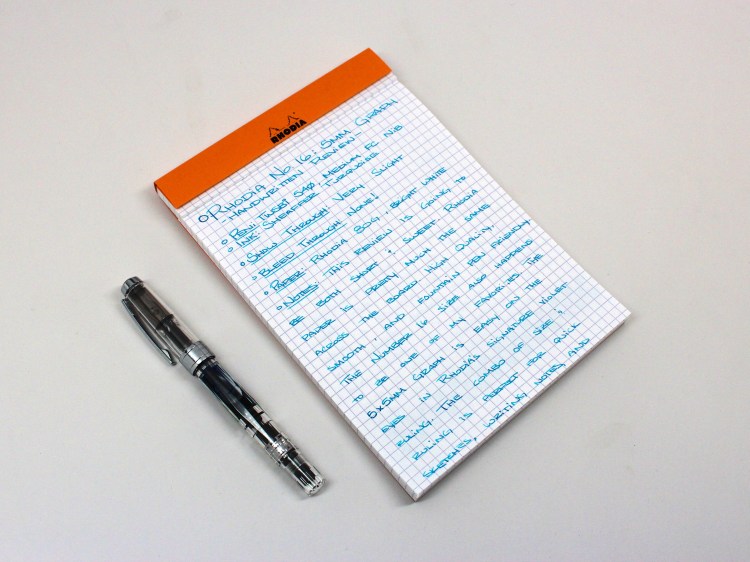 RHODIA
RHODIA No. 16: 5MM GRAPH
-HANDWRITTEN REVIEW-
PEN: TWSBI 540, MEDIUM FC NIB
INK: SHEAFFER TURQUOISE
SHOW THROUGH: VERY SLIGHT
BLEED THROUGH: NONE!
PAPER: RHODIA 80G, BRIGHT WHITE
NOTES: THIS REVIEW IS GOING TO
BE BOTH SHORT & SWEET. RHODIA
PAPER IS PRETTY MUCH THE SAME
ACROSS THE BOARD: HIGH QUALITY,
SMOOTH, AND FOUNTAIN PEN FRIENDLY.
THE NUMBER 16 SIZE ALSO HAPPENS
TO BE ONE OF MY FAVORITES. THE
5x5MM GRAPH IS EASY ON THE
EYES IN RHODIA'S SIGNATURE VIOLET
RULING. THE COMBO OF SIZE &
RULING IS PERFECT FOR QUICK
SKETCHES, WRITING NOTES, AND